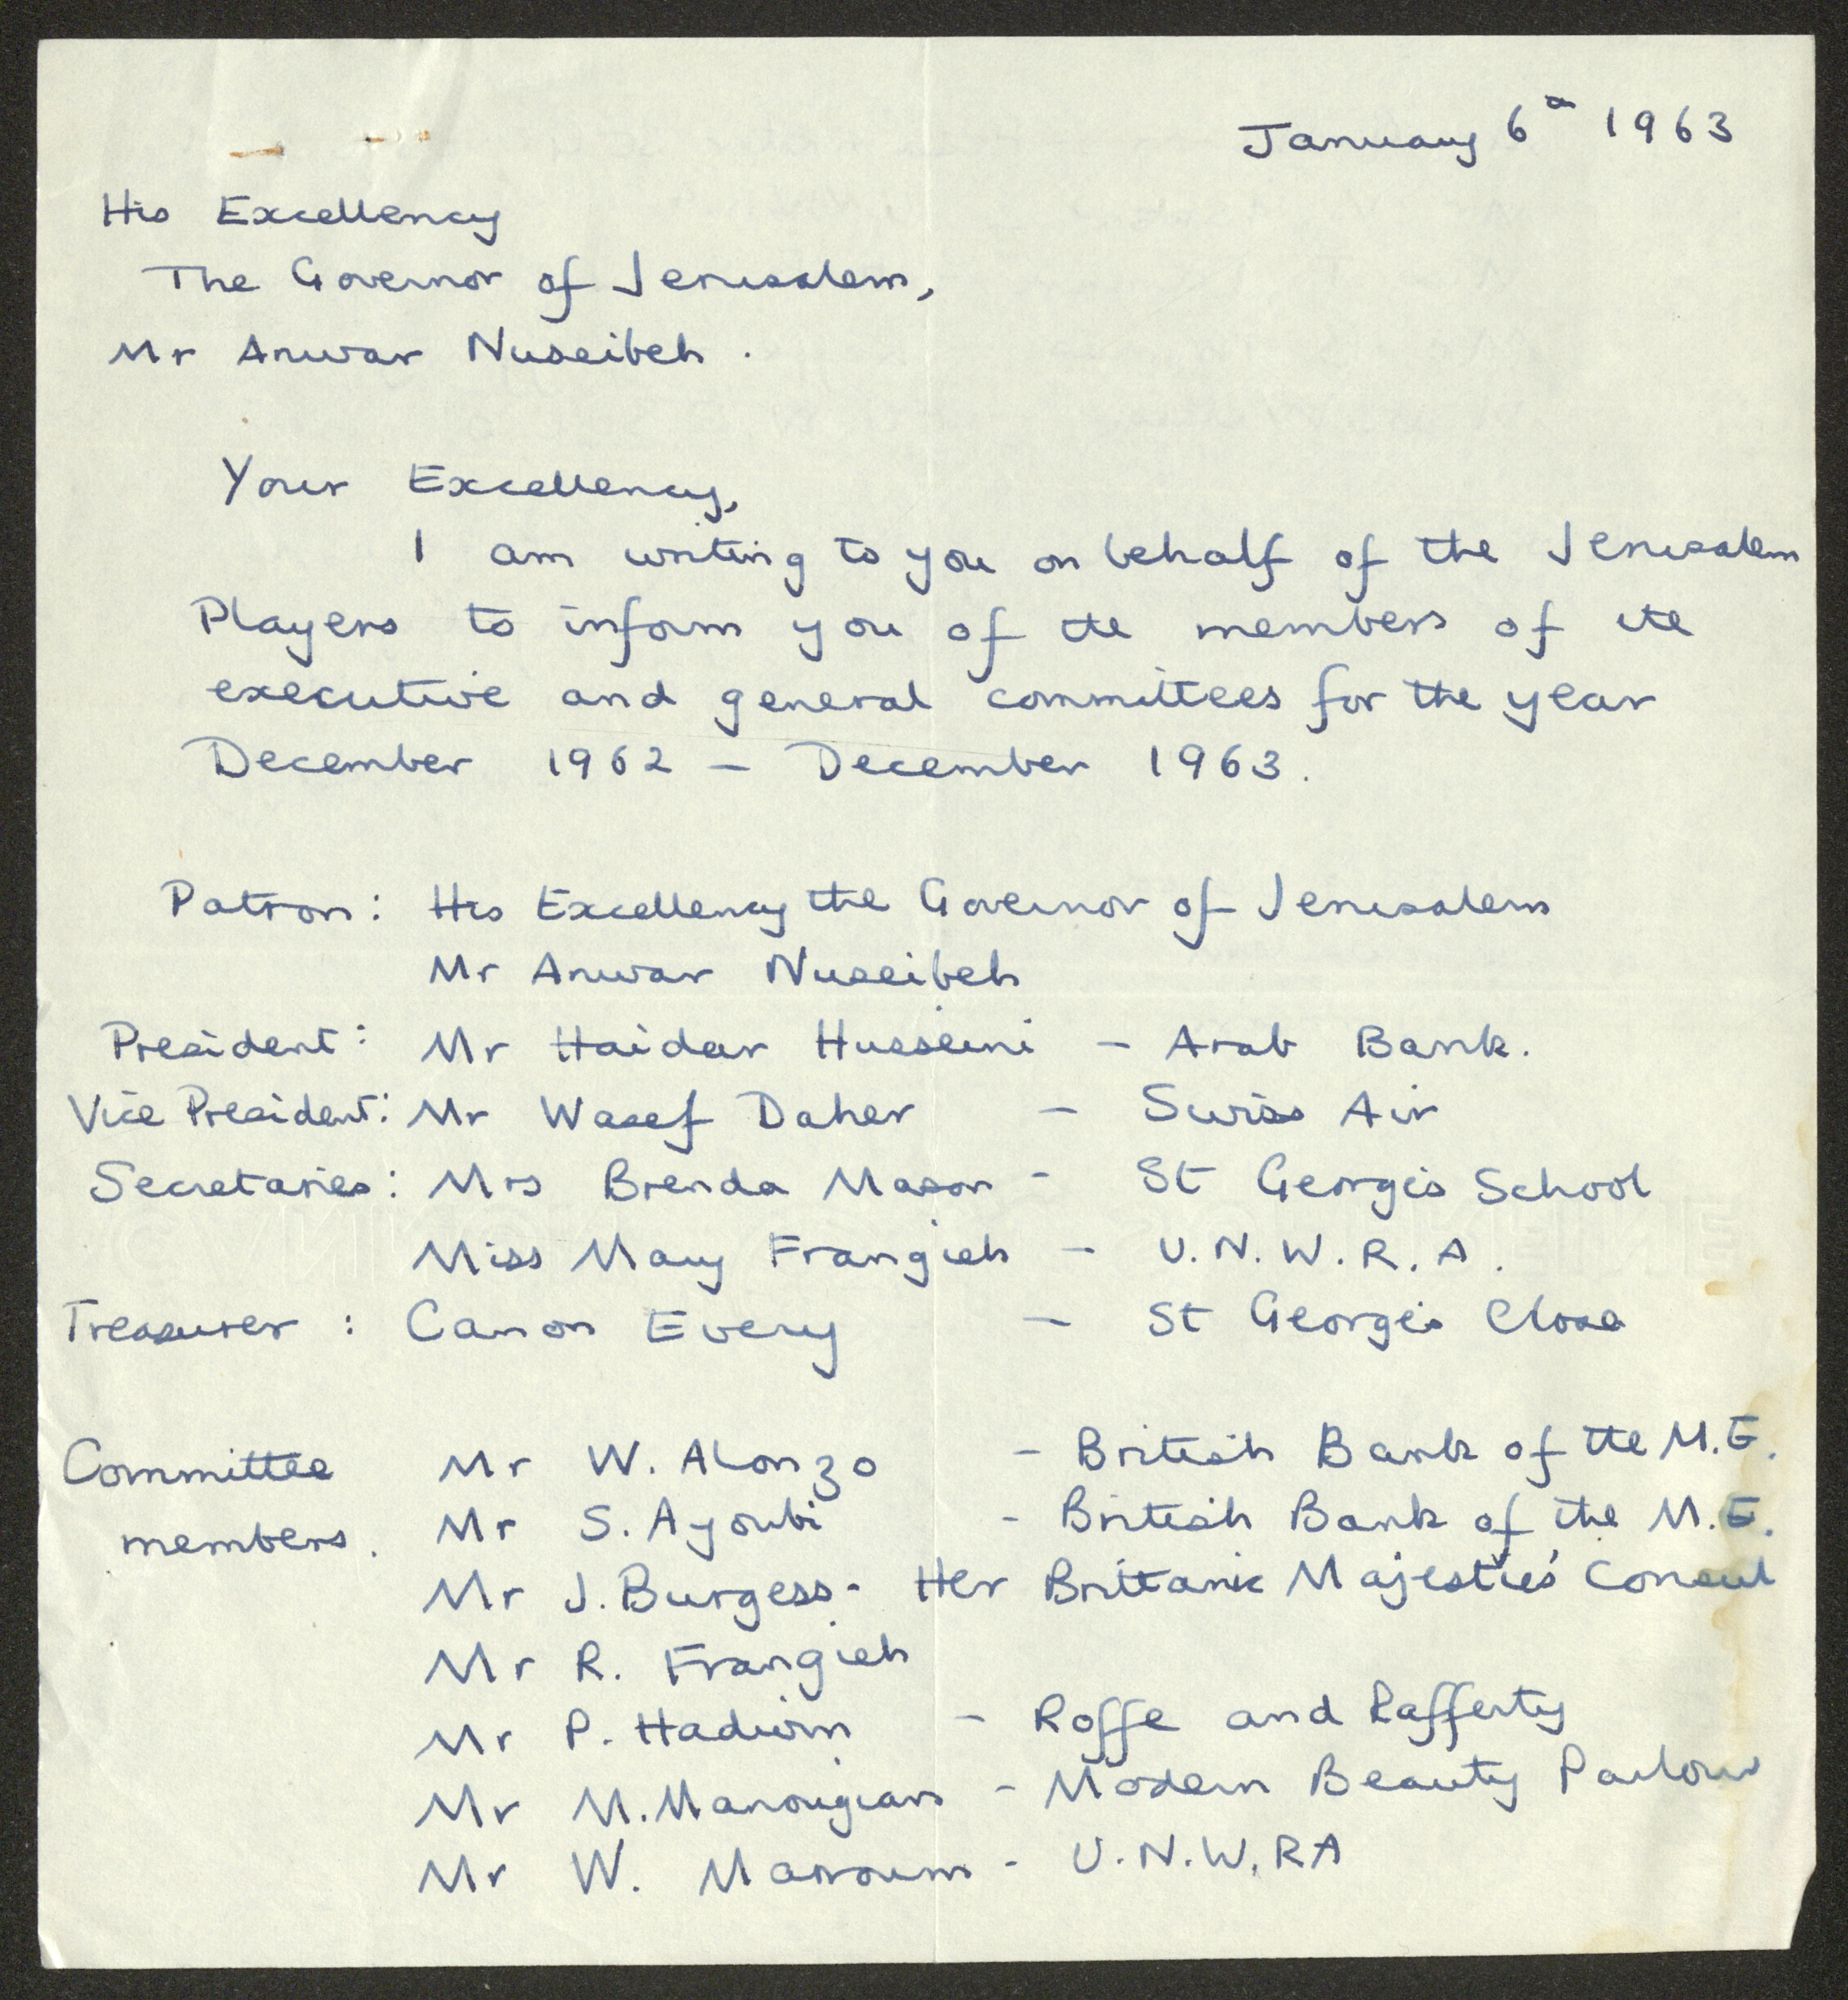 January 6th 1963
His Excellency
The Governor of Jerusalem,
Mr Anwar Nuseibeh.
Your Excellency,
I am writing to you on behalf of the Jerusalem
Players to inform you of the members of the
executive and general committees for the year
December 1962 - December 1963.
Patron: His Excellency the Governor of Jerusalem
Mr Anwar Nuseibeh
President: Mr Haidar Husseini - Arab Bank.
Vice President: Mr Wasef Daher - Swiss Air
Secretaries: Mrs Brenda Mason - St George's School
Miss Mary Frangieh - U.N.W.R.A.
Treasurer: Canon Every - St George's Close
Committee Mr W. Alonzo - British Bank of the M.E.
members. Mr S. Ayoubi - British Bank of the M.E.
Mr J. Burgess - Her Brittanic Majesties' Consul
Mr R. Frangieh
Mr P. - Roffe and Rafferty
Mr M. Manougian - Modern Beauty Parlour
Mr W. - U.N.W.RA